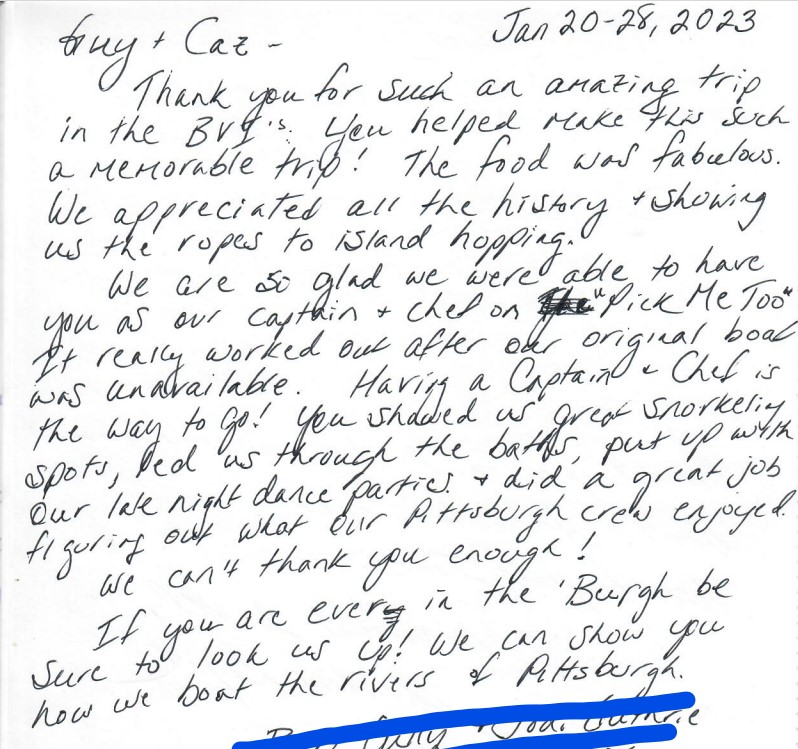 Jan 20-28, 2023
Guy + Caz -
Thank you for such an amazing trip
in the BVI's. You helped make this such
a memorable trip! The food was fabulous.
We appreciated all the history + showing
us the ropes to island hopping.
We are so glad we were able to have
you as our captain + chef on "Pick Me Too"
It really worked out after our original boat
was unavailable. Having a Captain + Chef is
the way to go! You showed us great snorkeling
spots, led us through the baths, put up with
our late night dance parties + did a great job
figuring out what our Pittsburgh crew enjoyed.
We can't thank you enough!
If you are ever in the 'Burgh be
sure to look us up! We can show you
how we boat the rivers of Pittsburgh.